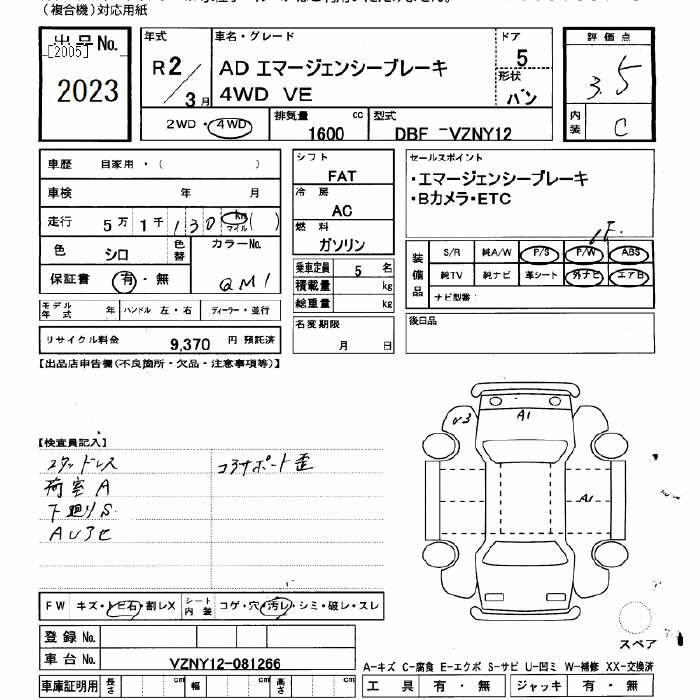 (複合機)対応用紙
出品No.
[2005]
2023
年式
R2/3月
車名・グレード
AD エマージェンシーブレーキ
4WD VE
ドア
5
形状
バン
評価点
3.5
内装
C
2WD・4WD
排気量
1600 cc
型式
DBF-VZNY12
車歴 自家用・( )
車検 年 月
走行 5万1千130 km マイル ( )
色 シロ 色替 カラーNo.
QM1
保証書 有・無
モデル年式 年 ハンドル 左・右 ディーラー・並行
リサイクル料金 9,370 円 預託済
シフト
FAT
冷房
AC
燃料
ガソリン
乗車定員 5 名
積載量 kg
総重量 kg
名変期限
月 日
セールスポイント
・エマージェンシーブレーキ
・Bカメラ・ETC
装備品
S/R 純A/W P/S P/W ABS
純TV 純ナビ 革シート 外ナビ エアB
ナビ型番:
後日品
【出品店申告欄(不良箇所・欠品・注意事項等)】
【検査員記入】
スタッドレス
コアサポート歪
荷室A
下廻りS
AU3セ
U3
A1
A1
FW キズ・トビ石・割レX
シート内装 コゲ・穴・汚レ・シミ・破レ・スレ
登録No.
車台No. VZNY12-081266
車庫証明用 長さ cm 幅 cm 高さ cm
スペア
A-キズ C-腐食 E-エクボ S-サビ U-凹ミ W-補修 XX-交換済
工具 有・無 ジャッキ 有・無